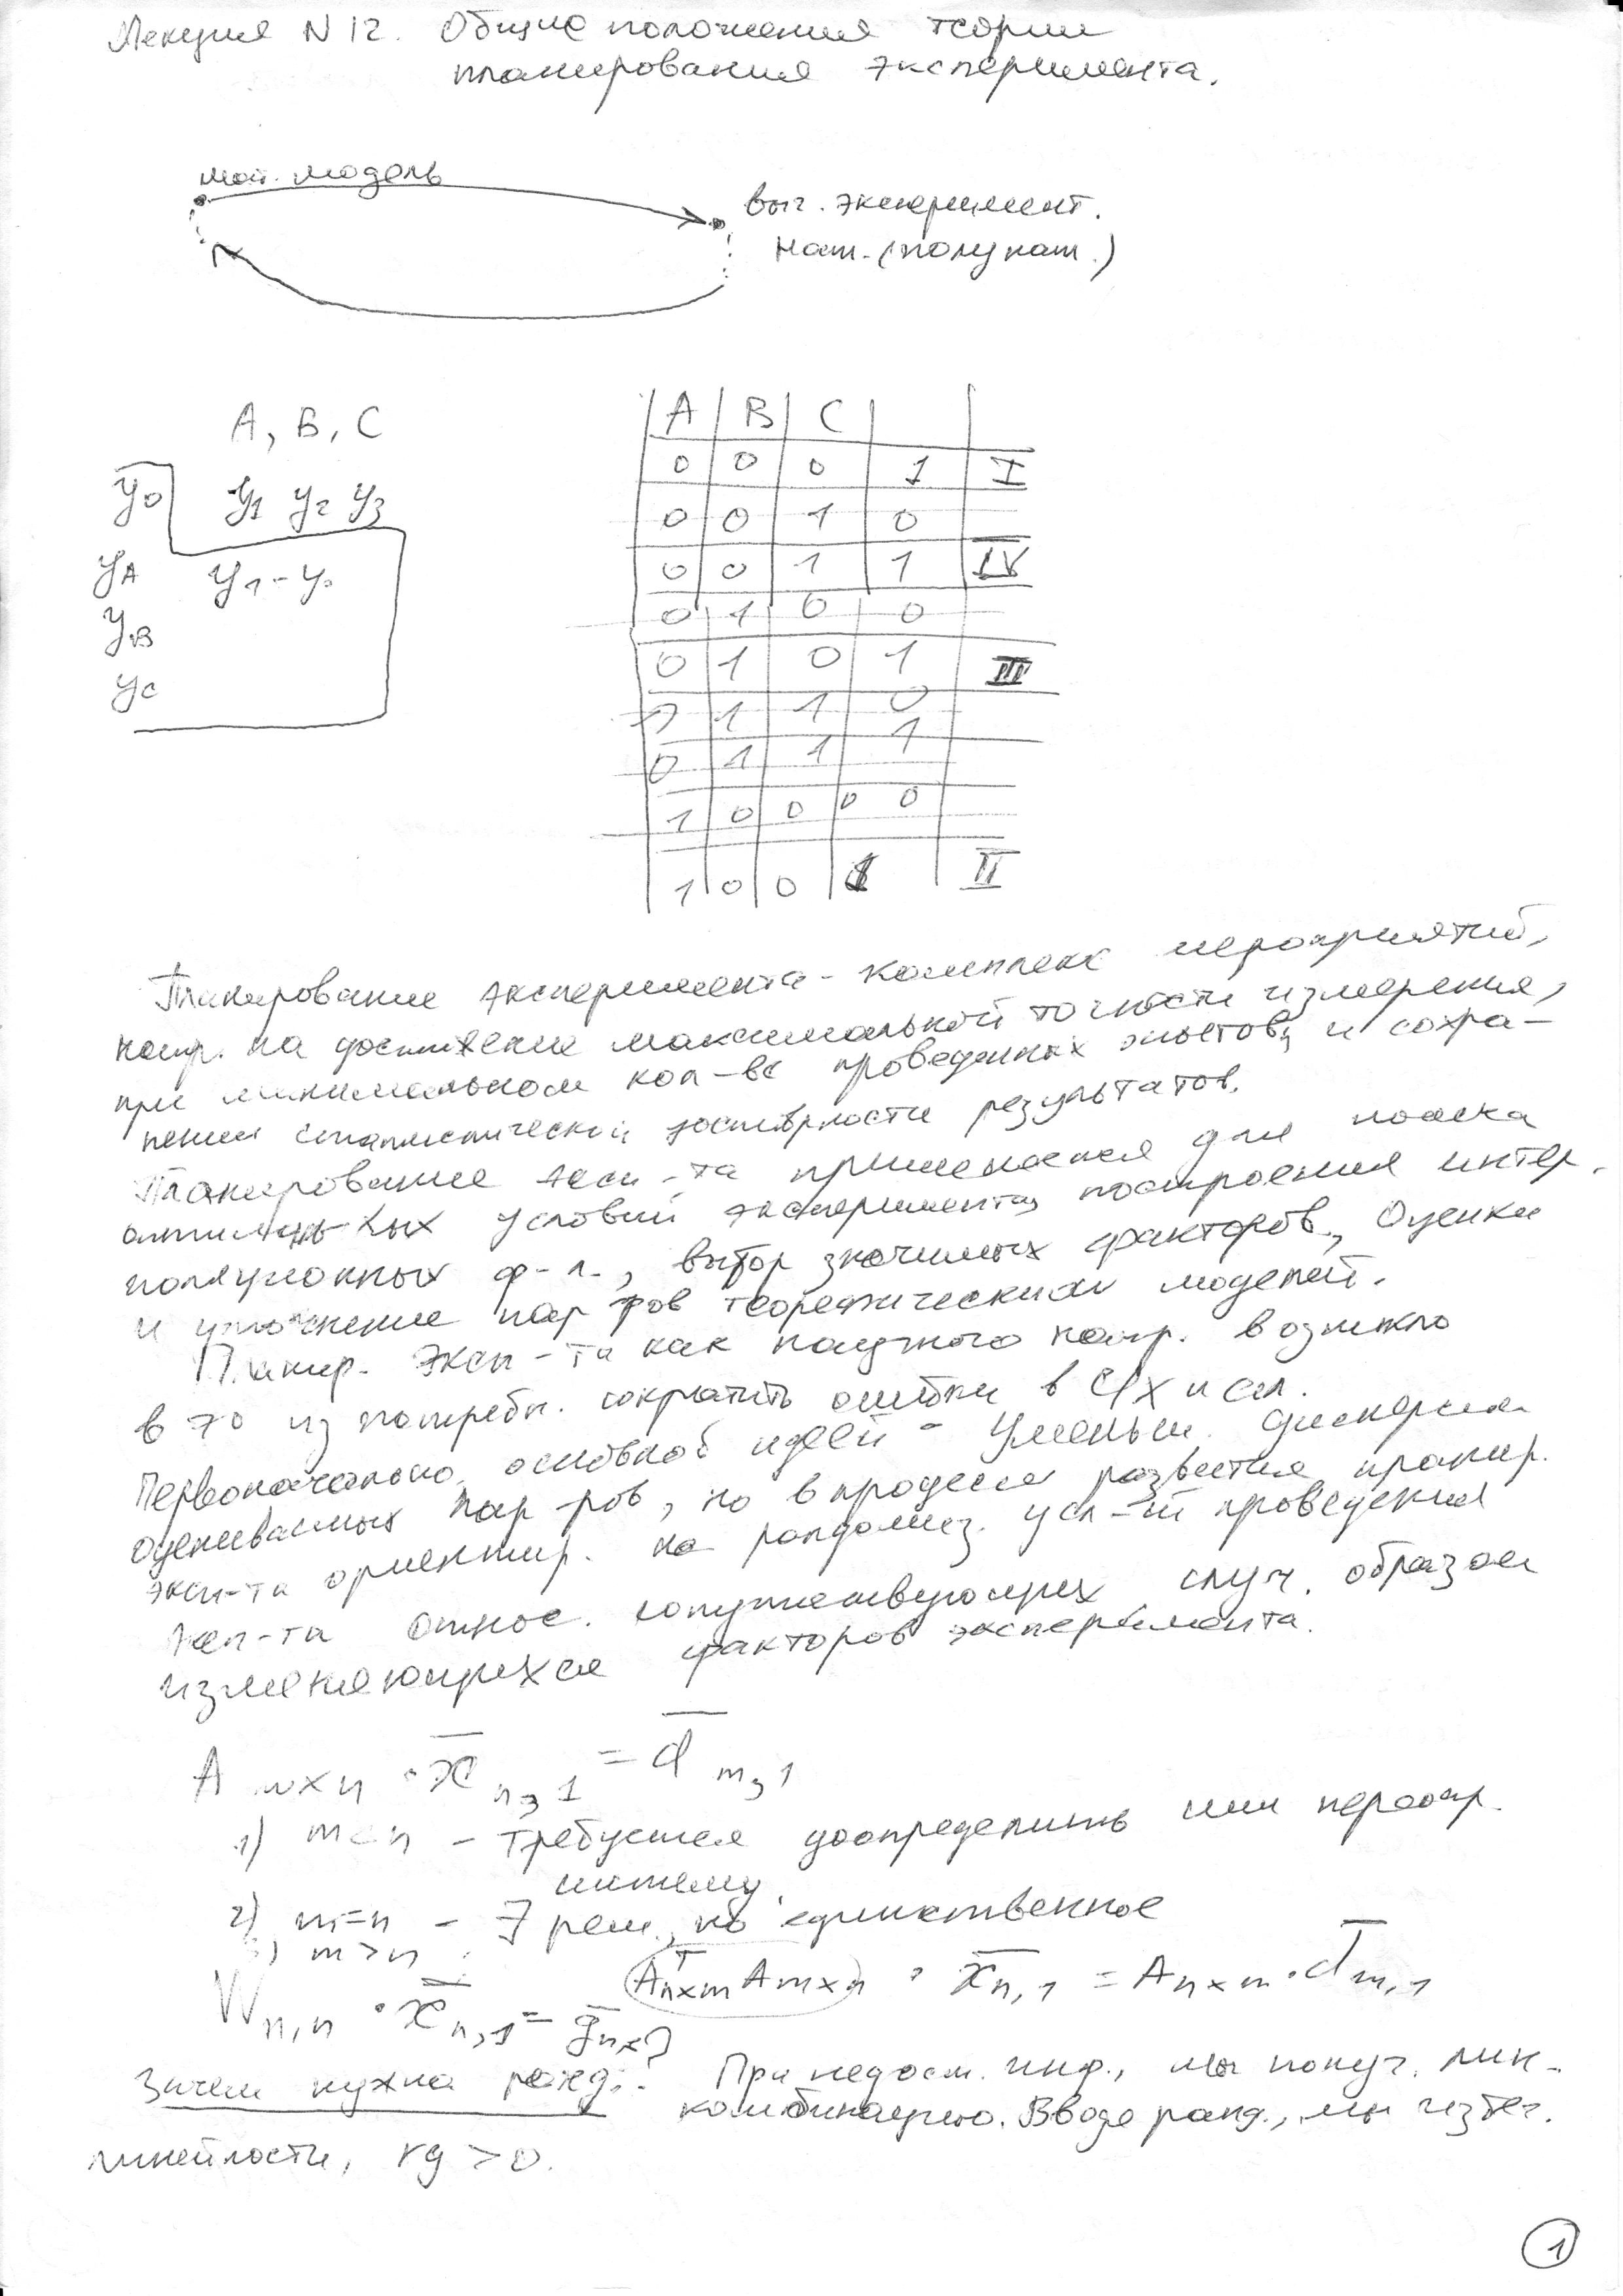 Лекция N 12. Общие положения теории
планирования эксперимента.
мат. модель
выч. эксперимент.
нат. (полунат.)
A, B, C
y0 y1 y2 y3
yA y1 - y0
yB
yC
A B C
0 0 0 1 I
0 0 1 0
0 0 1 1 IV
0 1 0 0
0 1 0 1 III
0 1 1 0
0 1 1 1
1 0 0 0 0
1 0 0 1 II
Планирование эксперимента - комплекс мероприятий,
напр. на достижение максимальной точности измерения,
при минимальном кол-ве проведенных опытов, и сохра-
нении статистической достоверности результатов.
Планирование эксп-та применяется для поиска
оптимальных условий эксперимента, построения интер.
поляционных ф-л., выбор значимых факторов, Оценки
и уточнение пар-ров теоретических моделей.
Планир. эксп-та как научного напр. возникло
в 20 из потребн. сократить ошибки в с/х иссл.
Первоначально, основной идеей - уменьш. дисперсии
оцениваемых пар-ров, но в процессе развития планир.
эксп-та ориентир. на рандомиз. усл-ий проведения
эксп-та относ. сопутствующих случ. образом
изменяющихся факторов эксперимента.
A m×n · x̄ n,1 = d̄ m,1
1) m<n - требуется доопределить или переопр.
систему.
2) m=n - ∃ реш., но единственное
3) m>n
(Aᵀn×m Am×n) · x̄n,1 = An×m · d̄m,1
Wn,n · x̄n,1 = ḡn×1
Зачем нужна ранд.: При недост. инф., мы получ. лин.
комбинацию. Вводя ранд., мы избег.
линейности, rg > 0.
1